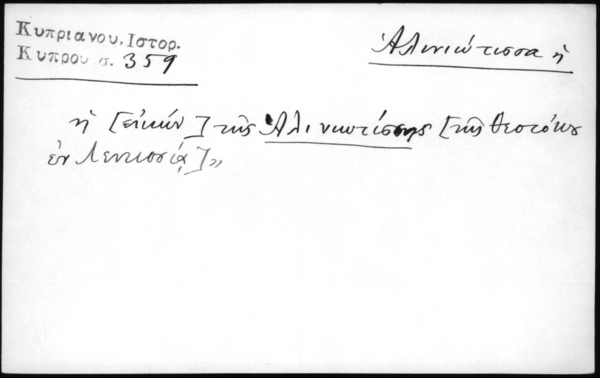 Κυπριανου, Ιστορ.
Κυπρου σ. 359
Ἀλινιώτισσα ἡ
ἡ [εἰκών] τῆς Ἀλινιωτίσσης [τῆς Θεοτόκου
ἐν Λευκωσίᾳ]»